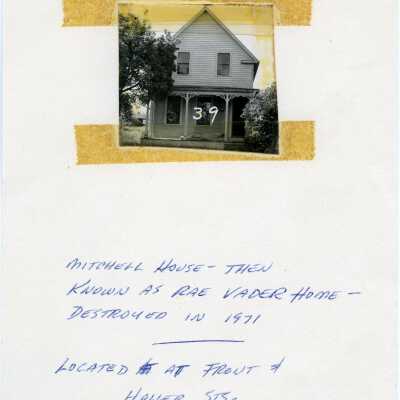 39
MITCHELL HOUSE - THEN
KNOWN AS RAE VADER HOME -
DESTROYED IN 1971
LOCATED AT FRONT &
HALLER STS.